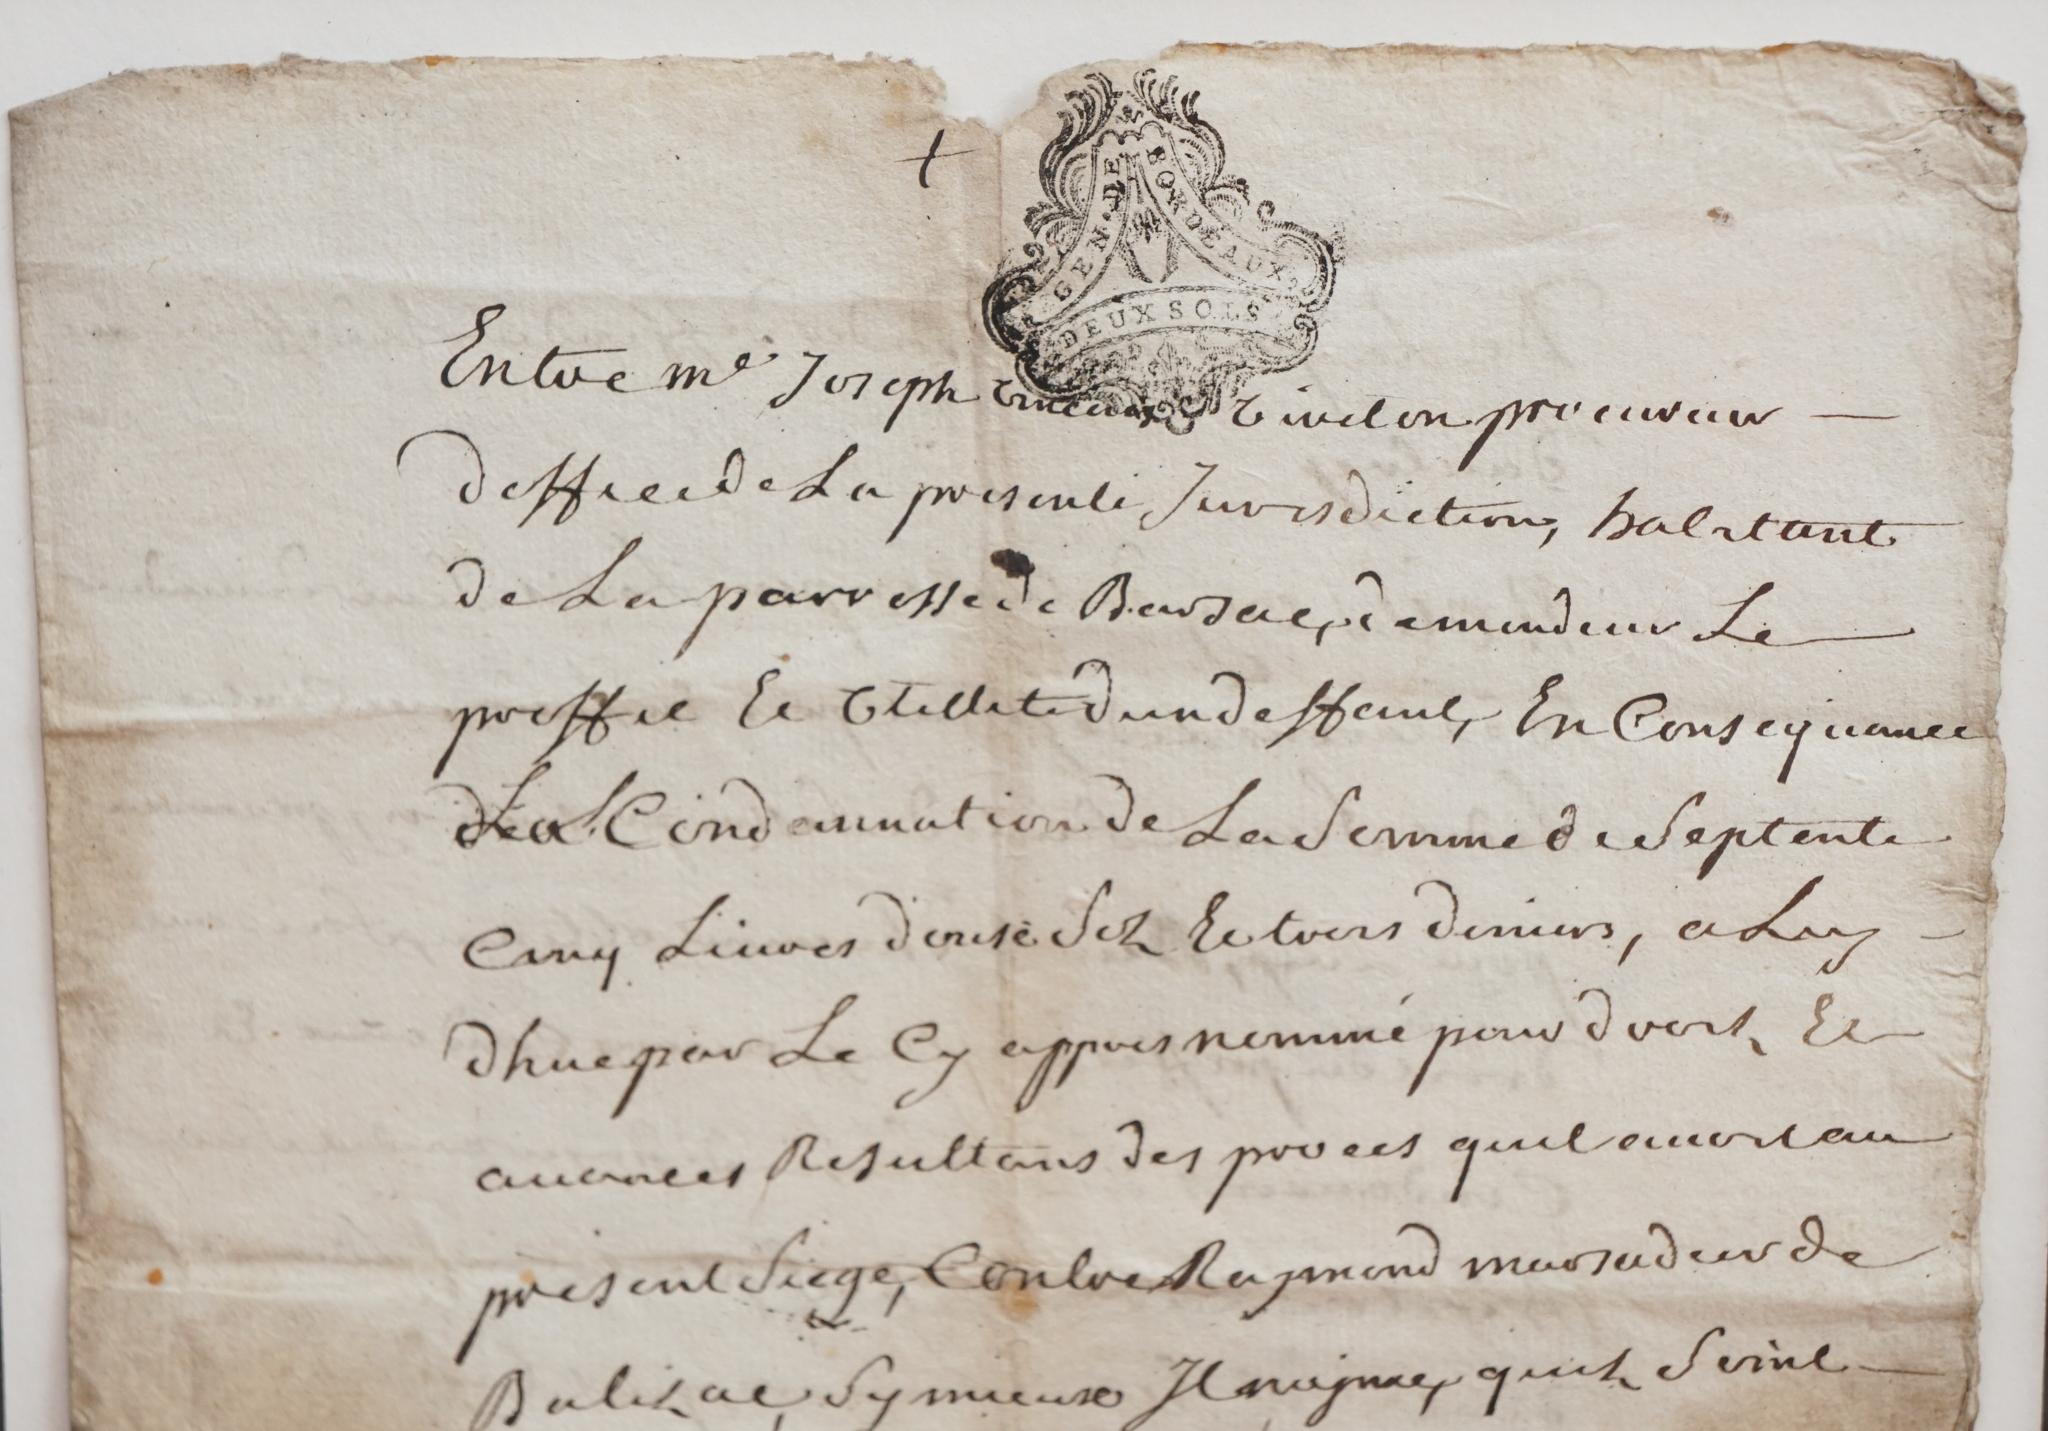 GEN. DE BORDEAUX
DEUX SOLS
Entre me Joseph Tivelon procureur
doffice de La presente Jurisdiction, habitant
de La parroisse de Barsac, demandeur Le
proffit Et Utillité dun deffaut, En Consequance
de La Condamnation de La Somme de Septente
Cinq Livres douse Sols Et trois deniers, a Luy
dhue par Le Cy appres nommé pour droits Et
avances Resultans des proces quil avoit au
present Siege, Contre Raymond
Balizac, Sy mieux Il nayme, quils Soint